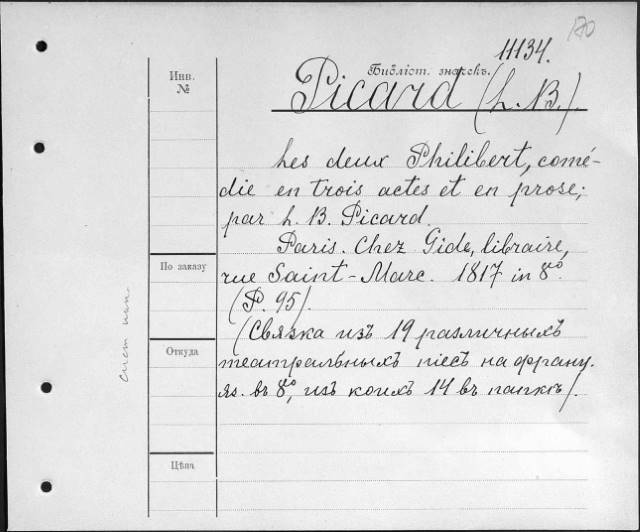 180
11134.
Инв.
№
Библіот. значекъ.
Picard (L. B.).
Les deux Philibert, comé-
die en trois actes et en prose;
par L. B. Picard.
Paris. Chez Gide, libraire,
rue Saint-Marc. 1817 in 8º.
(P. 95).
(Связка изъ 19 различныхъ
театральныхъ піесъ на франц.
яз. въ 8º, изъ коихъ 14 въ папкѣ).
По заказу
Откуда
Цѣна